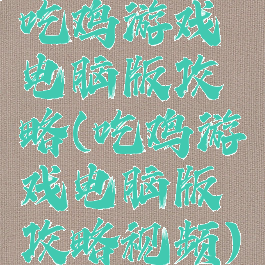 吃鸡游戏
电脑版攻
略(吃鸡游
戏电脑版
攻略视频)